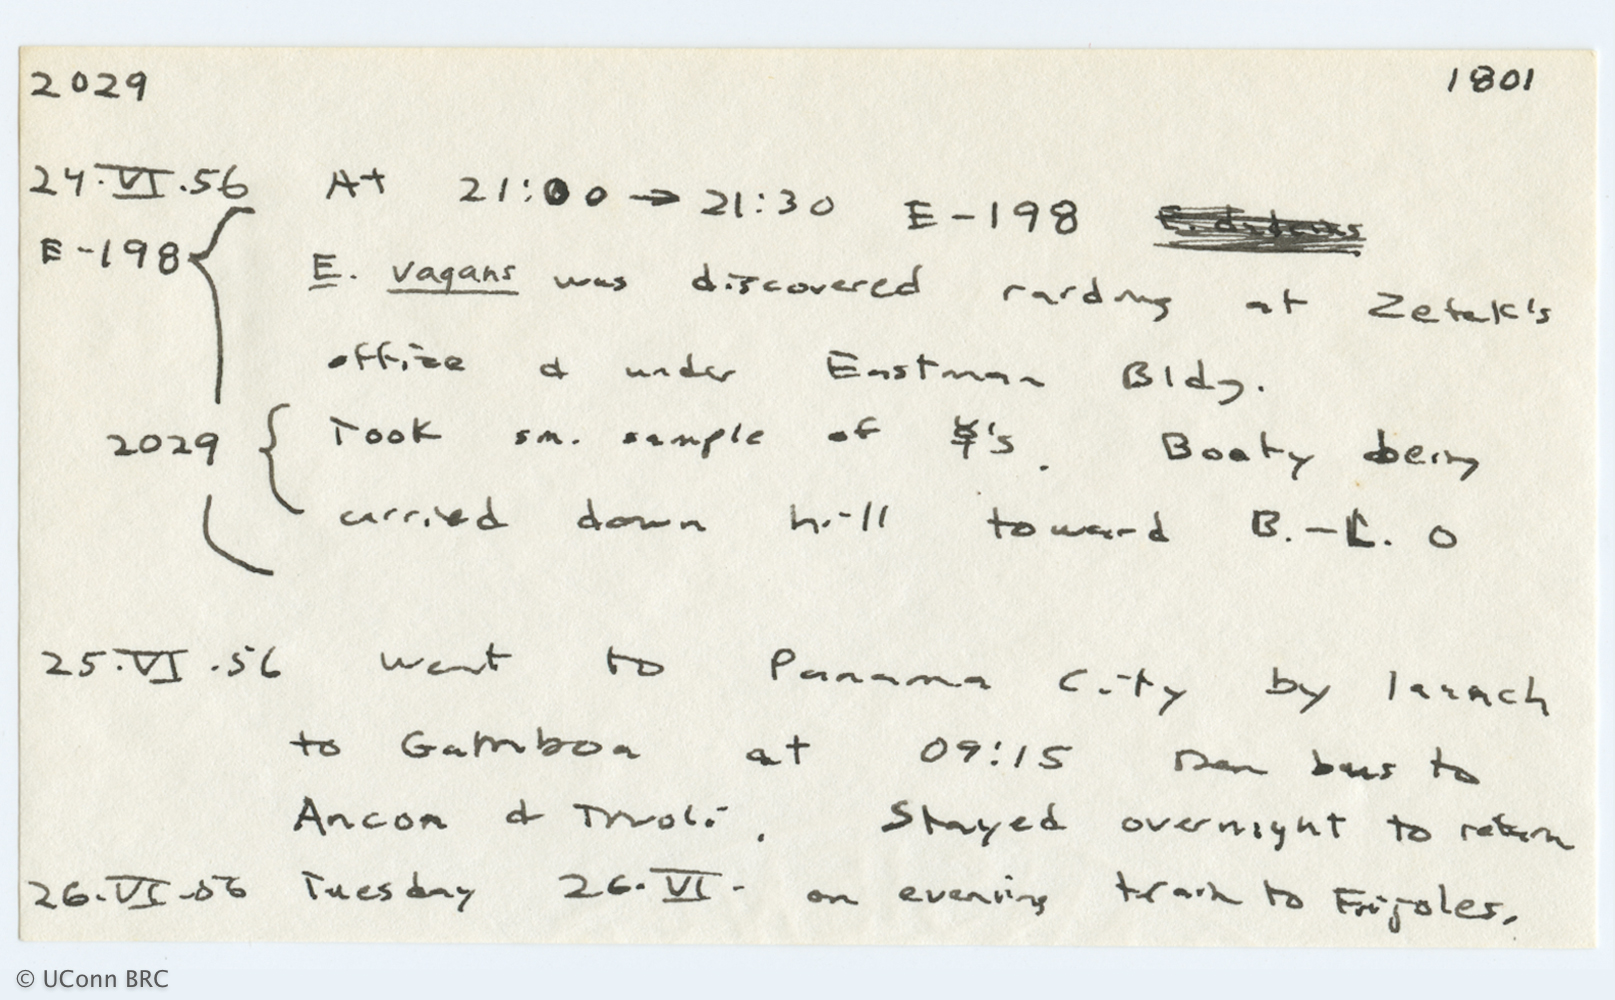 2029 1801
24·VI·56 At 21:00 → 21:30 E-198
E-198 E. vagans was discovered raiding at Zetek's
office & under Eastman Bldg.
2029 Took sm. sample of ☿'s. Booty being
carried down hill toward B.-L. O
25·VI·56 Went to Panama City by launch
to Gamboa at 09:15 then bus to
Ancon & Tivoli. Stayed overnight to return
26·VI·56 Tuesday 26·VI· on evening train to Frijoles.
© UConn BRC